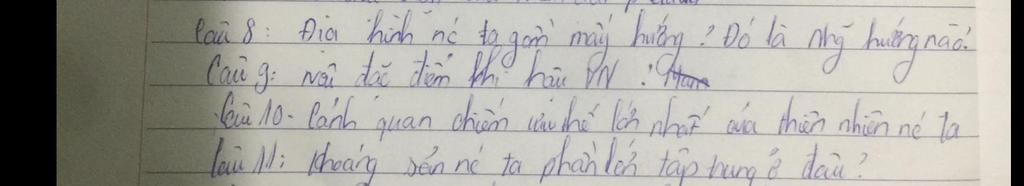 Câu 8: Địa hình nc ta gồm mấy hướng? Đó là nhg hướng nào?
Câu 9: Nêu đặc điểm khí hậu VN?
Câu 10- Cảnh quan chiếm ưu thế lớn nhất của thiên nhiên nc ta
Câu 11: Khoáng sản nc ta phần lớn tập trung ở đâu?